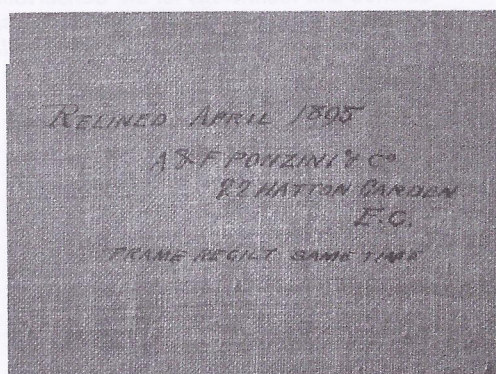 RELINED APRIL 1895
A & F PONZINI & Co
22 HATTON GARDEN
E.C.
FRAME REGILT SAME TIME